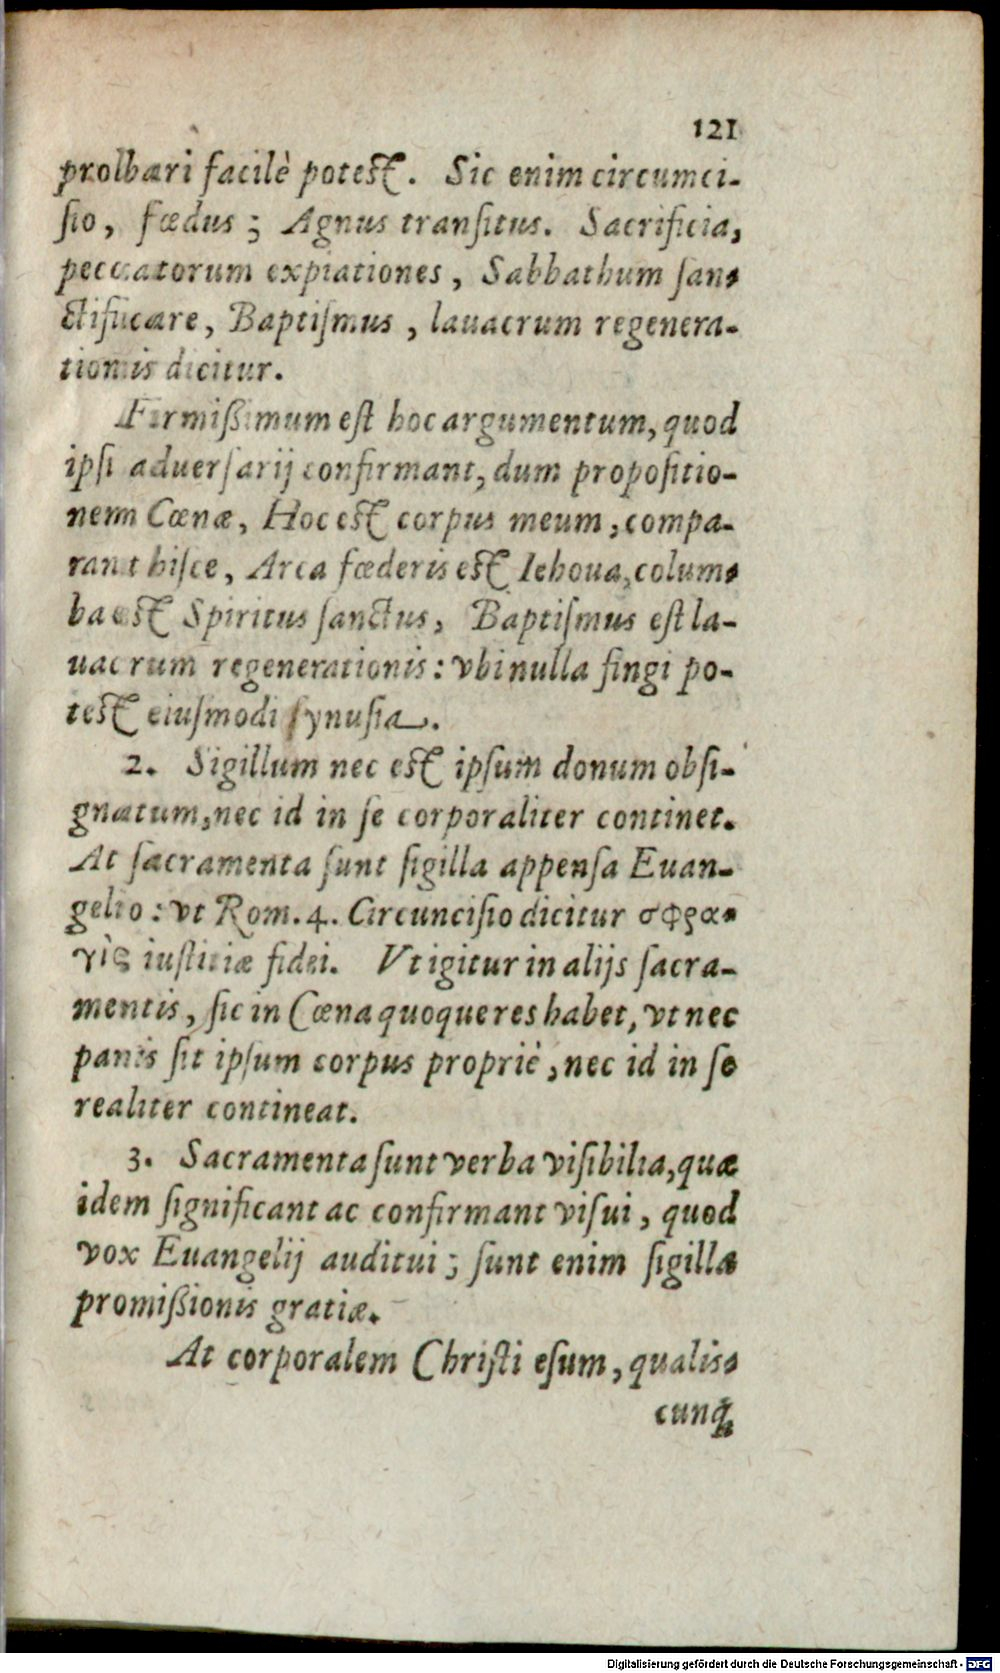 121
probari facilè potest. Sic enim circumci-
sio, fœdus; Agnus transitus. Sacrificia,
peccatorum expiationes, Sabbathum san-
ctificare, Baptismus, lauacrum regenera-
tionis dicitur.
Firmißimum est hoc argumentum, quod
ipsi aduersarij confirmant, dum propositio-
nem Cœnæ, Hoc est corpus meum, compa-
rant hisce, Arca fœderis est Iehoua, colum-
ba est Spiritus sanctus, Baptismus est la-
uacrum regenerationis: vbi nulla fingi po-
test eiusmodi synusia.
2. Sigillum nec est ipsum donum obsi-
gnatum, nec id in se corporaliter continet.
At sacramenta sunt sigilla appensa Euan-
gelio: vt Rom. 4. Circuncisio dicitur σφρα-
γὶς iustitiæ fidei. Vt igitur in alijs sacra-
mentis, sic in Cœna quoque res habet, vt nec
panis sit ipsum corpus propriè, nec id in se
realiter contineat.
3. Sacramenta sunt verba visibilia, quæ
idem significant ac confirmant visui, quod
vox Euangelij auditui; sunt enim sigilla
promißionis gratiæ.
At corporalem Christi esum, qualis-
cunq́;
Digitalisierung gefördert durch die Deutsche Forschungsgemeinschaft - DFG